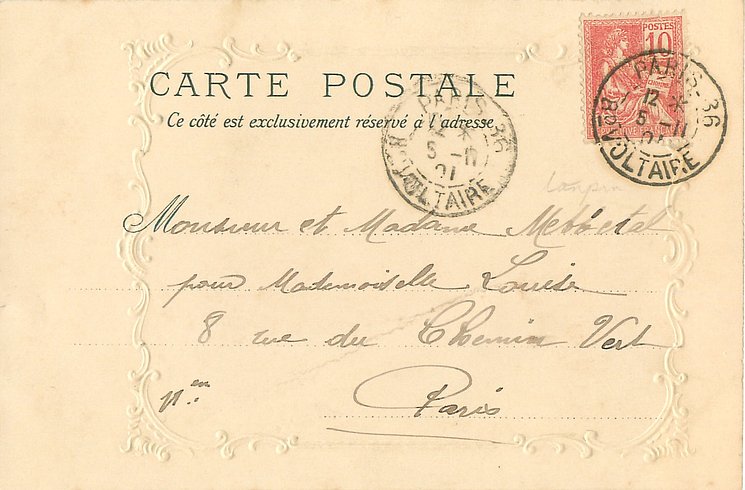 POSTES
10
CARTE POSTALE
Ce côté est exclusivement réservé à l'adresse
PARIS-36
12 *
5 -11
01
BD VOLTAIRE
PARIS-36
12 *
5 -11
01
BD VOLTAIRE
Monsieur et Madame
pour Mademoiselle Louise
8 rue du Chemin Vert
11.en
Paris